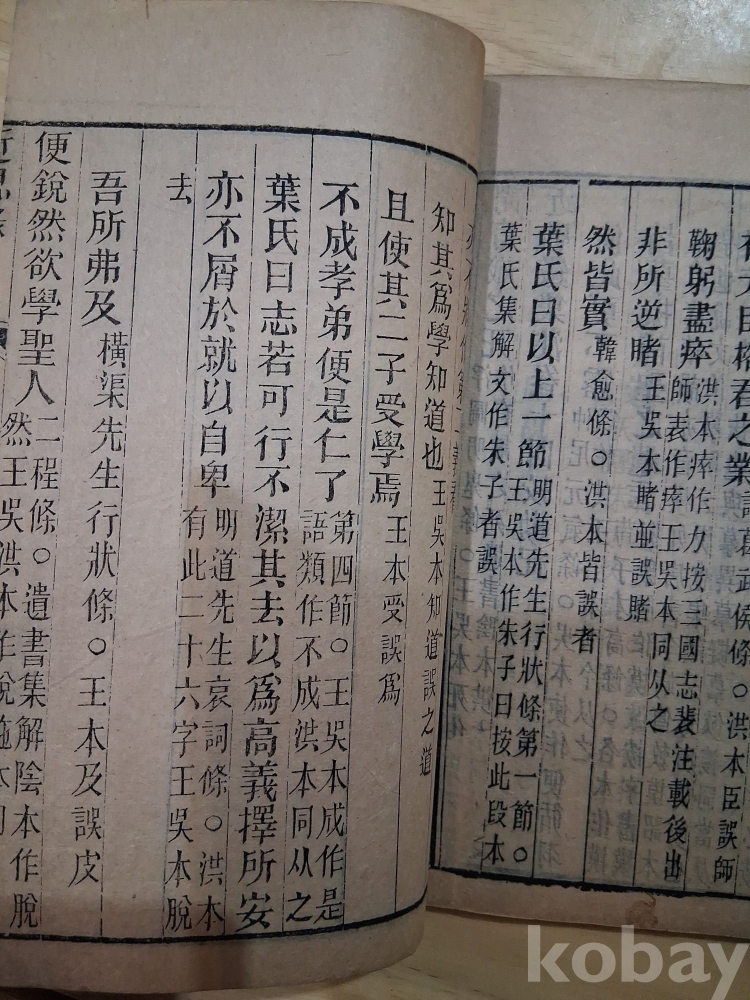 之業諸葛武侯條○洪本臣誤師
鞠躬盡瘁洪本瘁作力按三國志裴注載後出
師表作瘁王吳本同从之
非所逆睹王吳本睹並誤賭
然皆實韓愈條○洪本皆誤者
葉氏曰以上一節明道先生行狀條第一節○
王吳本作朱子曰按此段本
葉氏集解文作朱子者誤
知其爲學知道也王吳本知道誤之道
且使其二子受學焉王本受誤爲
不成孝弟便是仁了第四節○王吳本成作是
語類作不成洪本同从之
葉氏曰志若可行不潔其去以爲高義擇所安
亦不屑於就以自卑明道先生哀詞條○洪本
有此二十六字王吳本脫
去
吾所弗及橫渠先生行狀條○王本及誤皮
便銳然欲學聖人二程條○遺書集解陰本作脫
然王吳洪本作銳
近思
kobay